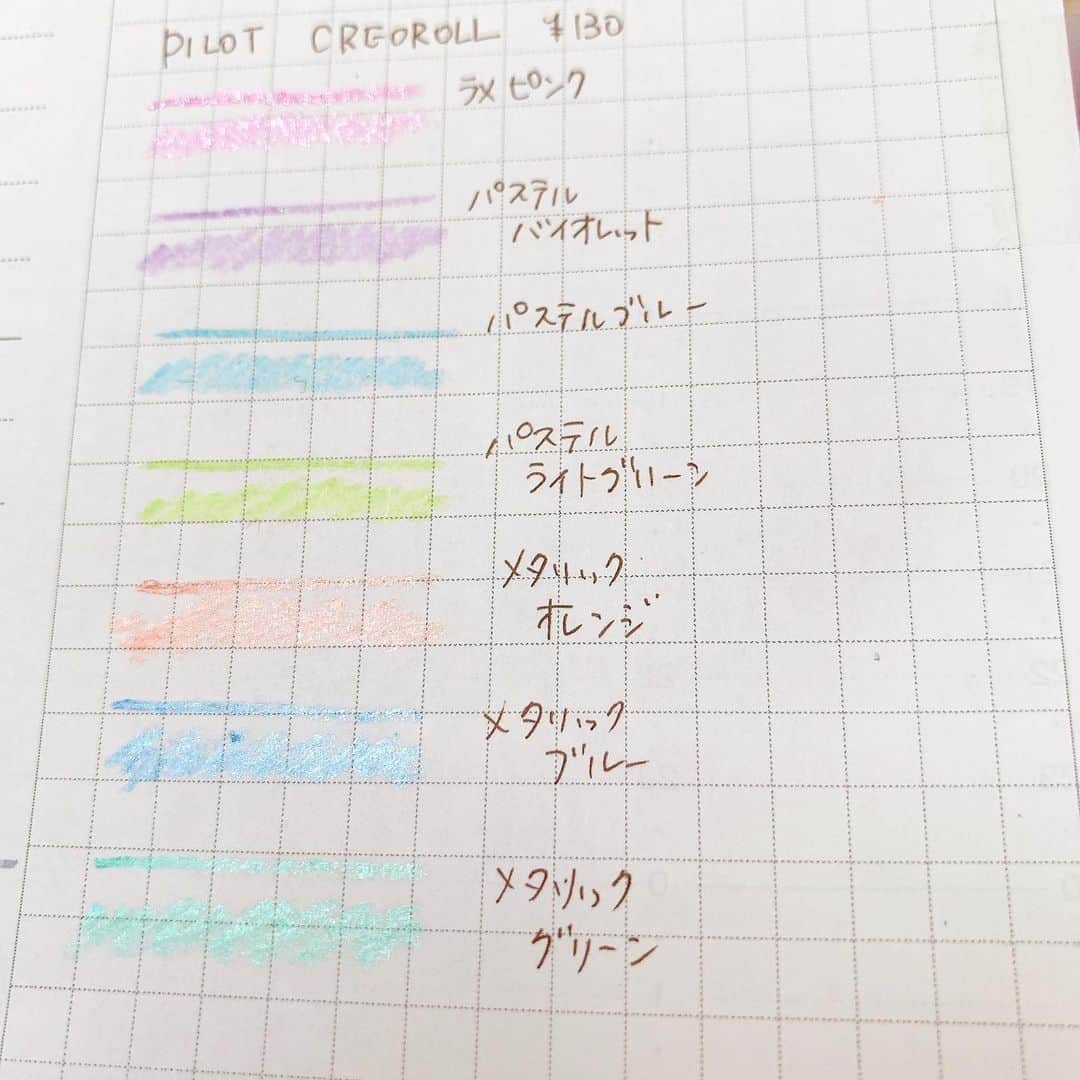 PILOT CREOROLL ¥130
ラメ ピンク
パステル
バイオレット
パステルブルー
パステル
ライトグリーン
メタリック
オレンジ
メタリック
ブルー
メタリック
グリーン